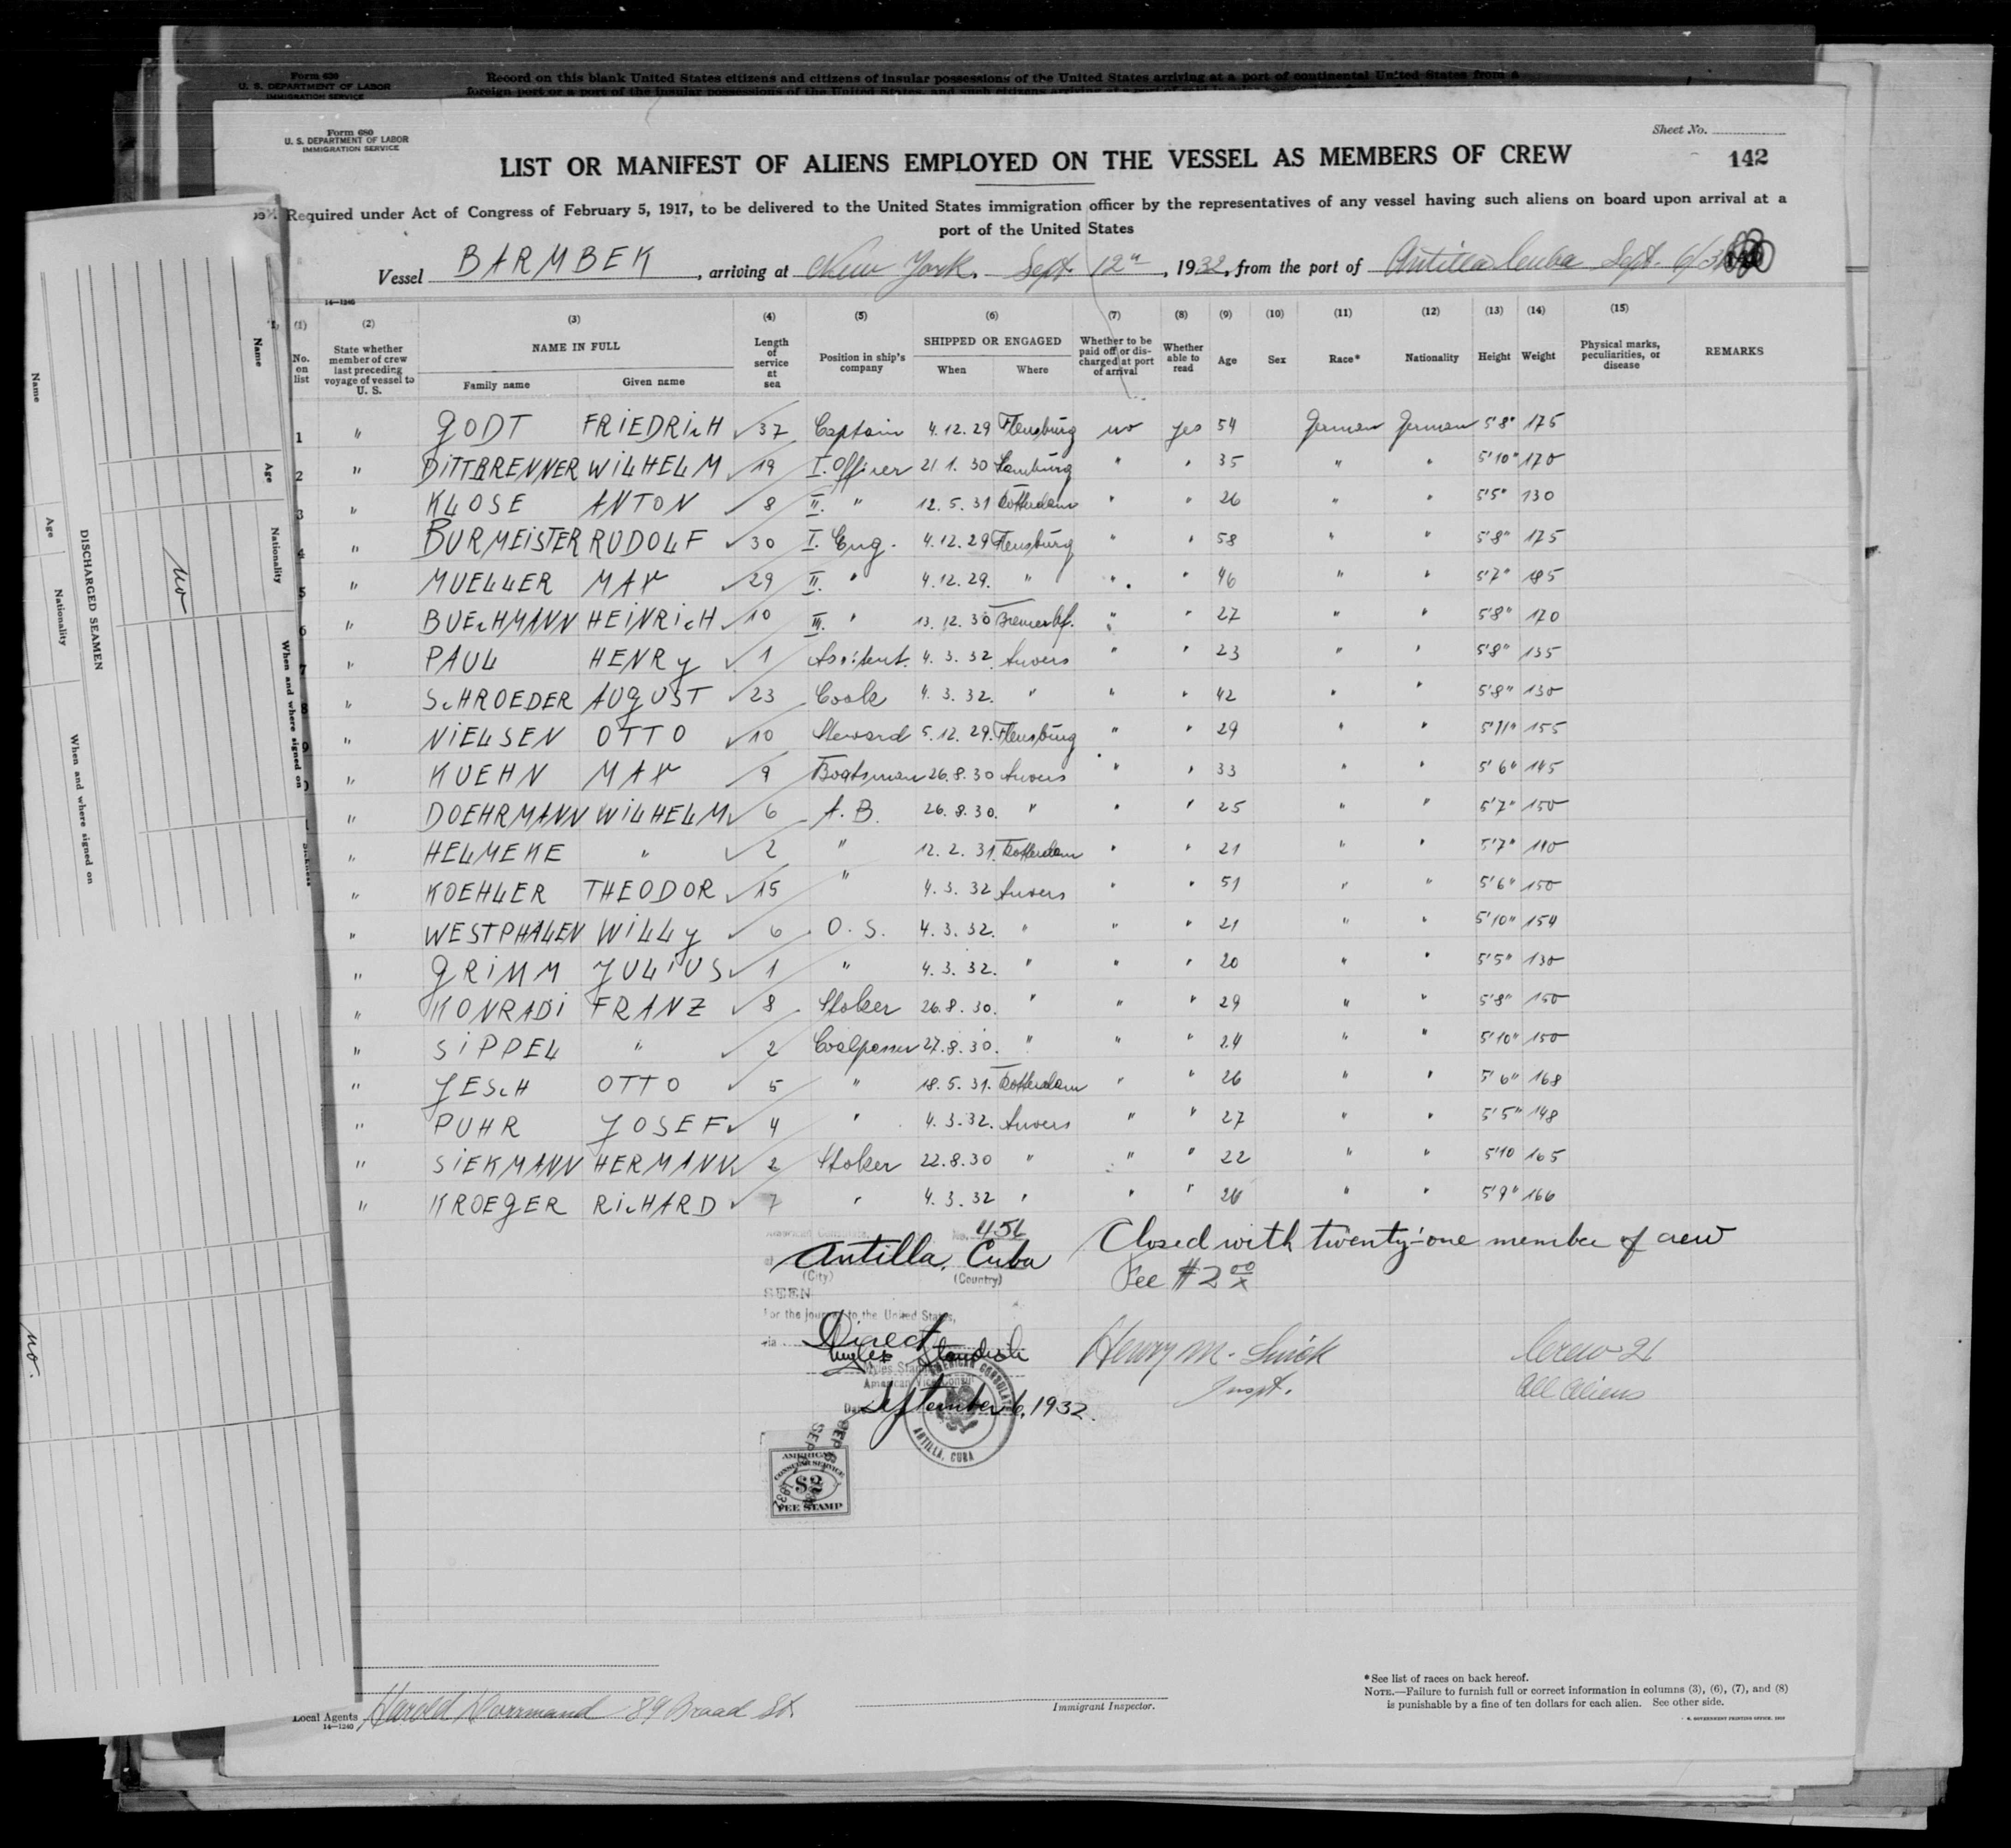 Form 630
U. S. DEPARTMENT OF LABOR
IMMIGRATION SERVICE
Record on this blank United States citizens and citizens of insular possessions of the United States arriving at a port of continental United States from a
foreign port or a port of the insular possessions of the United States, and such citizens arriving at a port of said
Form 680
U. S. DEPARTMENT OF LABOR
IMMIGRATION SERVICE
Sheet No.
LIST OR MANIFEST OF ALIENS EMPLOYED ON THE VESSEL AS MEMBERS OF CREW
142
Required under Act of Congress of February 5, 1917, to be delivered to the United States immigration officer by the representatives of any vessel having such aliens on board upon arrival at a
port of the United States
Vessel BARMBEK, arriving at New York. Sept. 12", 1932, from the port of Antilla Cuba Sept. 6/32
14—1240
(1) (2) (3) (4) (5) (6) (7) (8) (9) (10) (11) (12) (13) (14) (15)
No. on list State whether member of crew last preceding voyage of vessel to U. S. NAME IN FULL Family name Given name Length of service at sea Position in ship's company SHIPPED OR ENGAGED When Where Whether to be paid off or discharged at port of arrival Whether able to read Age Sex Race* Nationality Height Weight Physical marks, peculiarities, or disease REMARKS
1 " GODT FRIEDRICH 37 Captain 4.12.29 Flensburg no yes 54 German German 5'8" 175
2 " DITTBRENNER WILHELM 19 I. Officer 21 1. 30 Hamburg " " 35 " " 5'10" 170
3 " KLOSE ANTON 8 II. " 12. 5. 31 Rotterdam " " 26 " " 5'5" 130
4 " BURMEISTER RUDOLF 30 I. Eng. 4.12.29 Flensburg " " 58 " " 5'8" 175
5 " MUELLER MAX 29 II. " 4.12.29. " " " 46 " " 5'7" 185
6 " BUECHMANN HEINRICH 10 III. " 13. 12. 30 Bremerhf. " " 27 " " 5'8" 170
7 " PAUL HENRY 1 Assistent. 4. 3. 32. Anvers " " 23 " " 5'8" 135
8 " SCHROEDER AUGUST 23 Cook 4. 3. 32. " " " 42 " " 5'8" 130
9 " NIELSEN OTTO 10 Steward 5.12.29. Flensburg " " 29 " " 5'11" 155
" KUEHN MAX 9 Boatsman 26.8.30 Anvers " " 33 " " 5'6" 145
" DOEHRMANN WILHELM 6 A. B. 26.8.30. " " " 25 " " 5'7" 150
" HELMEKE " 2 " 12. 2. 31. Rotterdam " " 21 " " 5'7"
" KOEHLER THEODOR 15 " 4. 3. 32 Anvers " " 51 " " 5'6" 150
" WESTPHALEN WILLY 6 O. S. 4. 3. 32. " " " 21 " " 5'10" 154
" GRIMM JULIUS 1 " 4. 3. 32. " " " 20 " " 5'5" 130
" KONRADI FRANZ 8 Stoker 26.8.30. " " " 29 " " 5'8" 150
" SIPPEL " 2 Coalpasser 27.8.30. " " " 24 " " 5'10" 150
" JESCH OTTO 5 " 18. 5. 31. Rotterdam " " 26 " " 5'6" 168
" PUHR JOSEF 4 " 4. 3. 32. Anvers " " 27 " " 5'5" 148
" SIEKMANN HERMANN 2 Stoker 22.8.30 " " " 22 " " 5'10 165
" KROEGER RICHARD 7 " 4. 3. 32 " " " " " 5'9" 166
American Consulate, No. 1156
Antilla, Cuba Closed with twenty-one member of crew
(City) (Country) Fee $2 00/x
SEEN
For the journey to the United States,
via Direct
Myles Standish Henry M. Crew 21
Myles Standish Inspt. All Aliens
American Vice Consul
Date September 6, 1932.
AMERICAN CONSULATE
ANTILLA, CUBA
SEP 6 1932
AMERICAN
CONSULAR SERVICE
$2
FEE STAMP
*See list of races on back hereof.
NOTE.—Failure to furnish full or correct information in columns (3), (6), (7), and (8)
is punishable by a fine of ten dollars for each alien. See other side.
Local Agents Harold Dorrmand 89 Broad St.
Immigrant Inspector.
14—1240
U. S. GOVERNMENT PRINTING OFFICE
Name
Age
Nationality
When and where signed on
no
DISCHARGED SEAMEN
Name
Age
Nationality
When and where signed on
no.